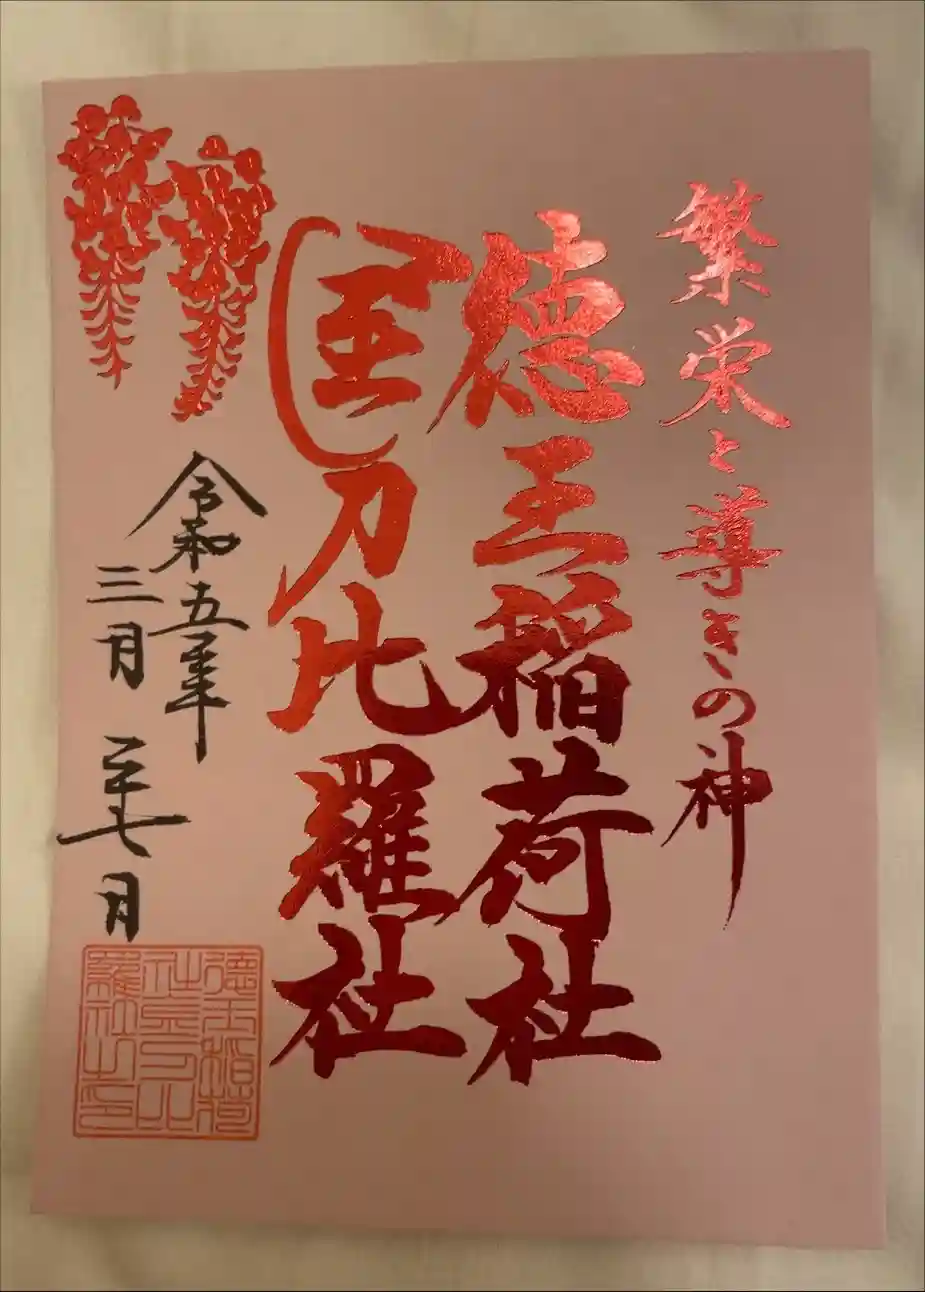 繁栄と導きの神
徳王稲荷社
金刀比羅社
令和五年
三月二十七日
徳王稲荷
社金刀比
羅社之印